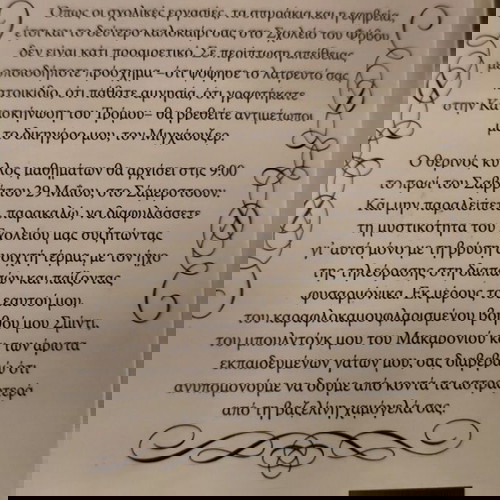 Όπως οι σχολικές εργασίες, τα σπυράκια και η εφηβεία,
έτσι και το δεύτερο καλοκαίρι σας στο Σχολείο του Φόβου
δεν είναι κάτι προαιρετικό. Σε περίπτωση απείθειας
με οποιοδήποτε πρόσχημα – ότι ψόφησε το λατρευτό σας
κατοικίδιο, ότι πάθατε αμνησία, ότι γραφτήκατε
στην Κα
του Τρόμου – θα βρεθείτε αντιμέτωποι
με το δικηγόρο μου, τον Μηχάουζερ.
Ο θερινός κύ
κλος μαθημάτων θα αρχίσει στις 9:00
το πρωί του Σαβ
29 Μαΐου, στο Σάμερστοουν.
Και μην παραλείπετε,
παρακαλώ, να διαφυλάσσετε
τη μυστικότητα του
Σχολείου μας συζητώντας
γι' αυτό μόνο με τη βρύση
ανοιχτή τέρμα, με τον ήχο
της τηλεόρασης στη διαπασών και παίζοντας
φυσαρμόνικα. Εκ μέρους του εαυτού μου,
του καραφλοκαμουφλαρισμένου βοηθού μου Σμίντι,
του μπουλντόγκ μου του Μακαρονιού και των άριστα
εκπαιδευμένων γάτων μου, σας διαβεβαιώ ότι
ανυπομονούμε να δούμε από κοντά τα αστραφτερά
από τη βαζελίνη χαμόγελά σας.